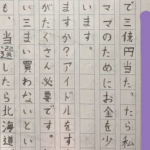 で三億円当た。たら私
ママのためにお金を少
ますか？アイドルをす
がたくさん必要です。
い三まい買わないとい
も、当選したら北海道